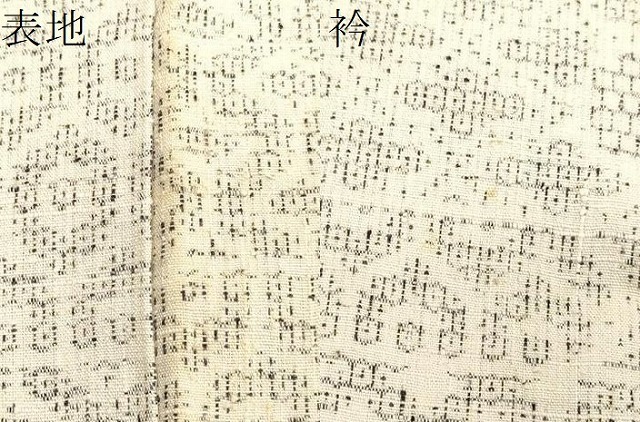 表地
衿